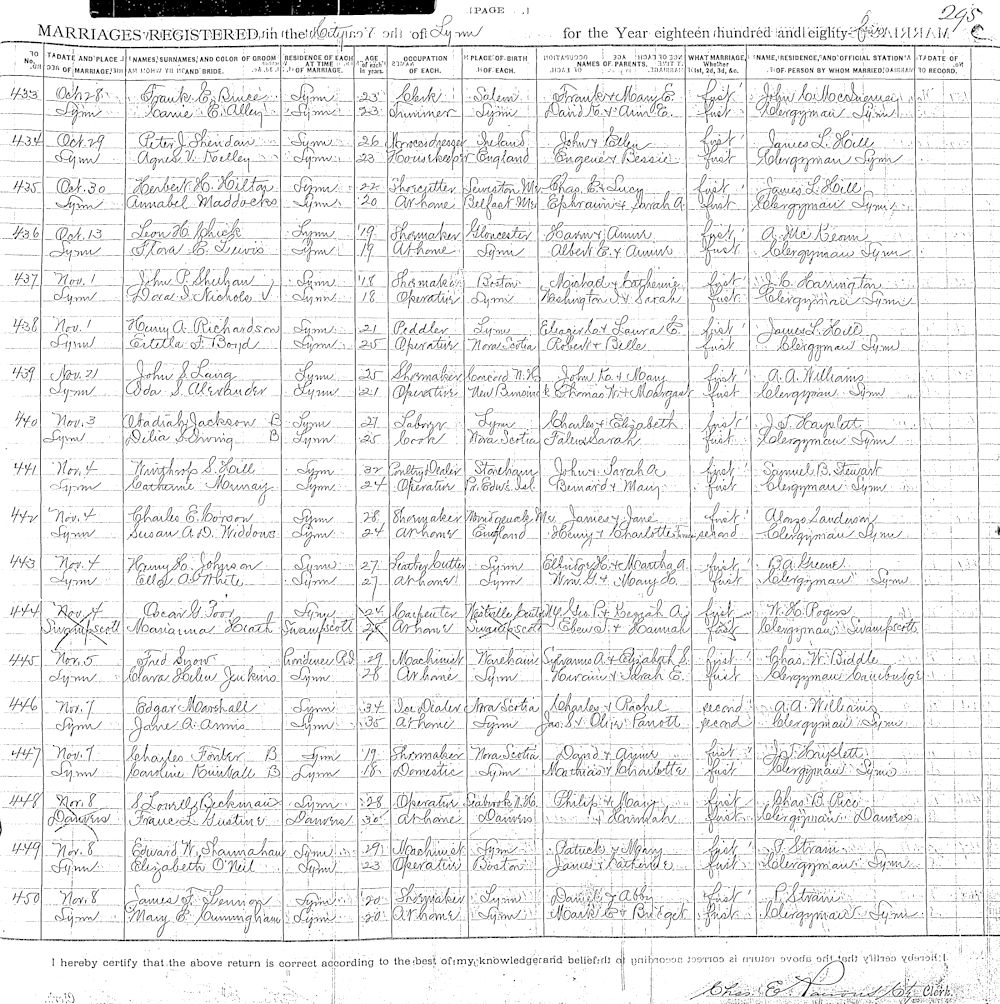 [PAGE
295
MARRIAGES REGISTERED in the City of Lynn for the Year eighteen hundred and eighty-
No. DATE AND PLACE OF MARRIAGE. NAMES, SURNAMES, AND COLOR OF GROOM AND BRIDE. RESIDENCE OF EACH AT TIME OF MARRIAGE. AGE of each in years. OCCUPATION OF EACH. PLACE OF BIRTH OF EACH. NAMES OF PARENTS. WHAT MARRIAGE, Whether 1st, 2d, 3d, &c. NAME, RESIDENCE, AND OFFICIAL STATION OF PERSON BY WHOM MARRIED. DATE OF RECORD.
433 Oct 28 Frank E. Bruce Lynn 23 Clerk Salem Frank & Mary E. first John C.
Lynn Carrie E. Alley Lynn 23 Lynn David & Ann E. first Clergyman Lynn
434 Oct. 29 Peter J. Sheridan Lynn 26 Morocco dresser Ireland John & Ellen first James L. Hill
Lynn Agnes V. Kelley Lynn 23 Housekeeper England Eugene & Bessie first Clergyman Lynn
435 Oct. 30 Herbert H. Hilton Lynn 22 Shoecutter Lewiston Me Chas. E & Lucy first James L. Hill
Lynn Annabel Maddocks Lynn 20 At home Belfast Me Ephraim & Sarah A. first Clergyman Lynn
436 Oct. 13 Leon H. Lynn 19 Shoemaker Gloucester & first A. McKeown
Lynn Flora E. Lewis Lynn 19 At home Lynn Albert E. & first Clergyman Lynn
437 Nov. 1 John P. Sheehan Lynn 18 Shoemaker Boston Michael & Catherine first J. C. Harrington
Lynn Dora S. Nichols Lynn 18 Operative Lynn Washington & Sarah first Clergyman Lynn
438 Nov. 1 Henry A. Richardson Lynn 21 Peddler Lynn & Laura E. first James L. Hill
Lynn Estella F. Boyd Lynn 25 Operative Nova Scotia Robert & Belle first Clergyman Lynn
439 Nov. 21 John S. Lynn 25 Shoemaker Concord N.H. John & Mary first A. A. Williams
Lynn Ida S. Alexander Lynn 21 Operative New Brunswick Thomas W. & Margaret first Clergyman Lynn
440 Nov. 3 Obadiah Jackson B Lynn 27 Laborer Lynn Charles & Elizabeth first J. T.
Lynn Delia B Lynn 25 Cook Nova Scotia & Sarah first Clergyman Lynn
441 Nov. 4 Winthrop S. Hill Lynn 32 Poultry Dealer Stoneham John & Sarah A first Samuel B. Stewart
Lynn Catherine Murray Lynn 24 Operative Pr. Edw's Isl. Bernard & Mary first Clergyman Lynn
442 Nov. 4 Charles E. Corson Lynn 28 Shoemaker Me James & Jane first Alonzo Sanderson
Lynn Susan A. D. Widdows Lynn 24 At home England Henry & Charlotte second Clergyman Lynn
443 Nov. 4 Henry L. Johnson Lynn 27 Leather Cutter Lynn & Martha A. first Greene
Lynn Ella A. White Lynn 27 At home Lynn Wm. G. & Mary H. first Clergyman Lynn
444 Nov. 4 Oscar G. Poor Lynn 24 Carpenter Geo. P. & Keziah A. first W. H. Rogers
Swampscott Marianna Heath Swampscott At home Swampscott & Hannah first Clergyman Swampscott
445 Nov. 5 Fred Snow Providence R.I. 29 Machinist Wareham Sylvanus A. & Elizabeth S. first Chas. W. Biddle
Lynn Clara Helen Jenkins Lynn 28 At home Lynn Hiram & Sarah E. first Clergyman Cambridge
446 Nov. 7 Edgar Marshall Lynn 34 Ice Dealer Nova Scotia Charley & Rachel second A. A. Williams
Lynn Jane A. Annis Lynn 35 At home Lynn Jas. S. & Parrott second Clergyman Lynn
447 Nov. 7 Charles B Lynn 19 Shoemaker Nova Scotia David & first J. T.
Lynn Caroline Kimball B Lynn 18 Domestic Lynn Mathias & Charlotte first Clergyman Lynn
448 Nov. 8 S. Lowell Beckman Lynn 28 Operative Seabrook N.H. Philip & Mary first Chas. B. Rice
Danvers L. Danvers 30 At home Danvers & Hannah first Clergyman Danvers
449 Nov. 8 Edward W. Shannahan Lynn 29 Machinist Lynn Patrick & Mary first P. Strain
Lynn Elizabeth O'Neil Lynn 23 Operative Boston James & Catherine first Clergyman Lynn
450 Nov. 8 James F. Lennon Lynn 20 Shoemaker Lynn Daniel & Abby first P. Strain
Lynn Mary E. Cunningham Lynn 20 At home Lynn Mark E & Bridget first Clergyman Lynn
I hereby certify that the above return is correct according to the best of my knowledge and belief.
Chas. E. Clerk.